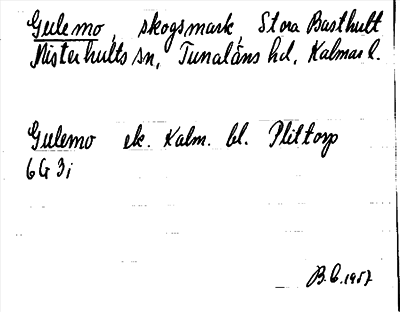 Gulemo, skogsmark, Stora Basthult
Misterhults sn, Tunaläns hd, Kalmar l.
Gulemo ek. Kalm. bl. Plittorp
6G 3i
B.C. 1957